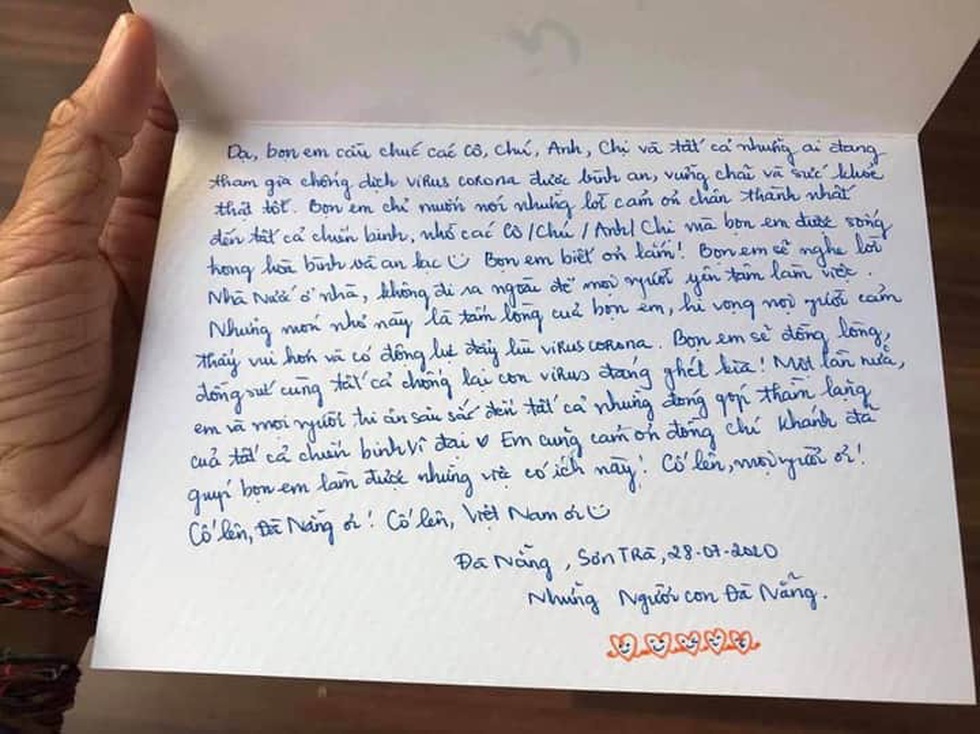 Dạ, bọn em cầu chúc các Cô, Chú, Anh, Chị và tất cả những ai đang
tham gia chống dịch virus corona được bình an, vững chãi và sức khỏe
thật tốt. Bọn em chỉ muốn nói những lời cảm ơn chân thành nhất
đến tất cả chiến binh, nhờ các Cô/Chú/Anh/Chị mà bọn em được sống
trong hòa bình và an lạc Bọn em biết ơn lắm! Bọn em sẽ nghe lời
Nhà Nước ở nhà, không đi ra ngoài để mọi người yên tâm làm việc.
Những món nhỏ này là tấm lòng của bọn em, hi vọng mọi người cảm
thấy vui hơn và có động lực đẩy lùi virus corona. Bọn em sẽ đồng lòng,
đồng sức cùng tất cả chống lại con virus đáng ghét kia! Một lần nữa,
em và mọi người tri ân sâu sắc đến tất cả những đóng góp thầm lặng
của tất cả chiến binh vĩ đại ♥ Em cũng cảm ơn đồng chí Khánh đã
giúp bọn em làm được những việc có ích này! Cố lên, mọi người ơi!
Cố lên, Đà Nẵng ơi! Cố lên, Việt Nam ơi
Đà Nẵng, Sơn Trà, 28-07-2020
Những Người con Đà Nẵng.